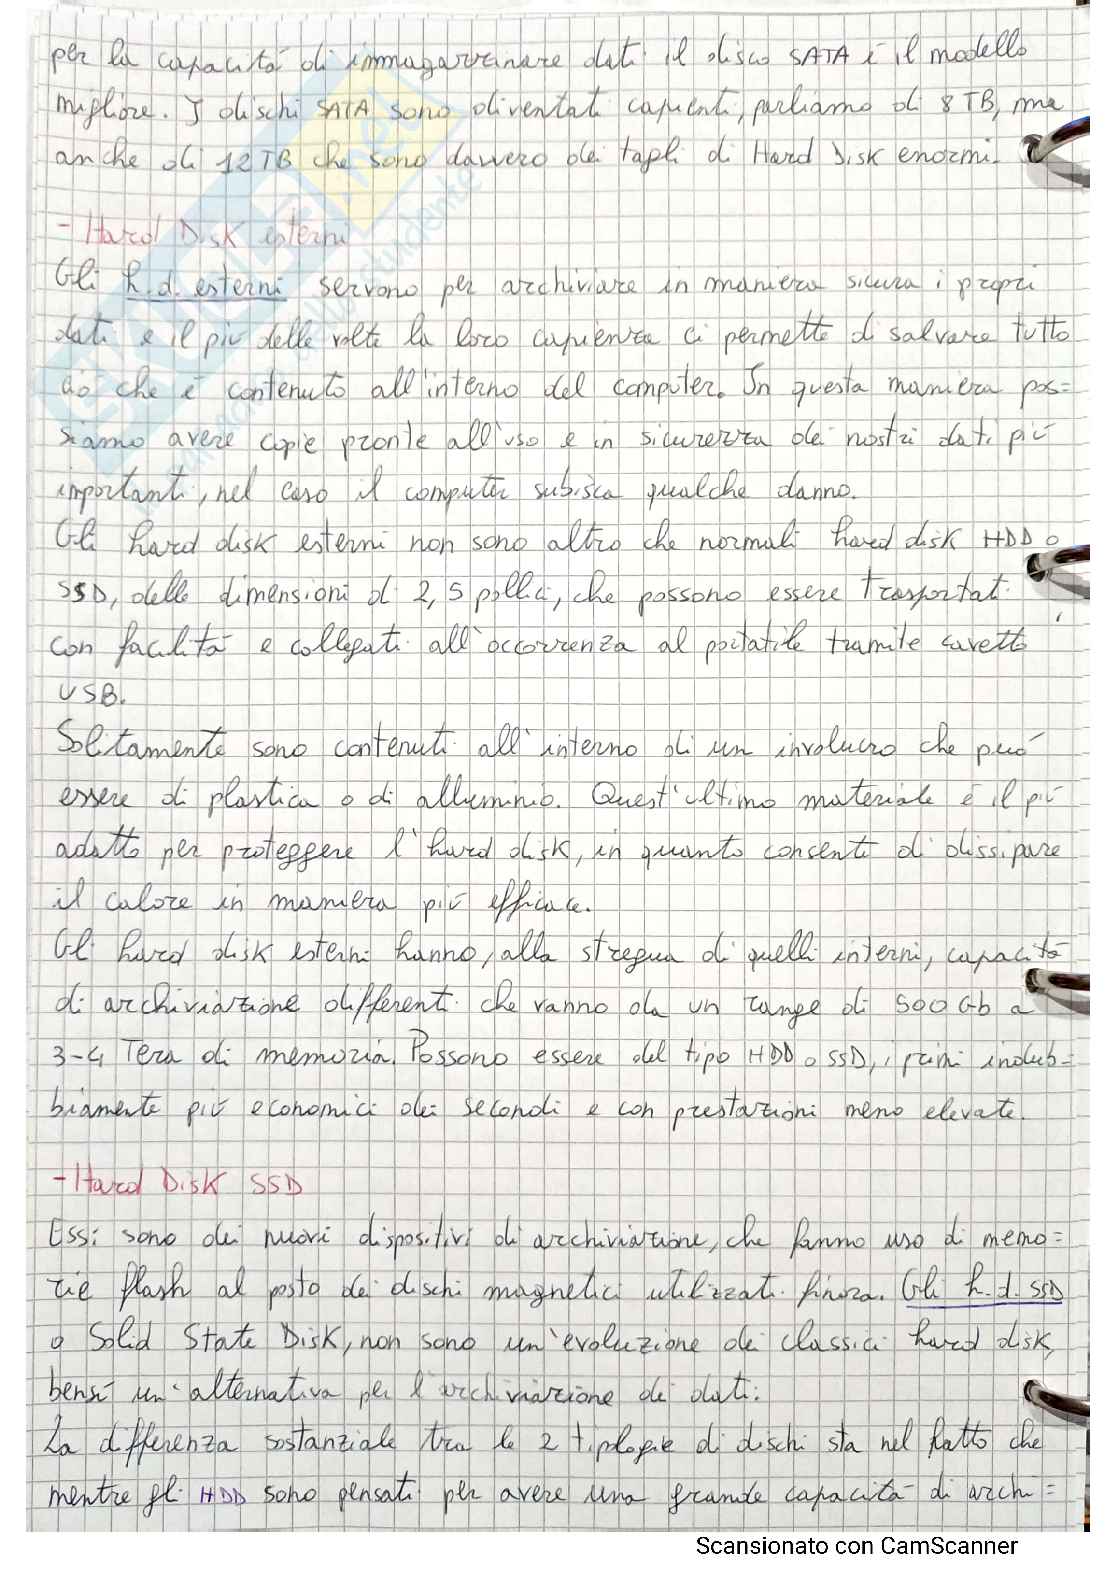 per la capacità di immagazzinare dati il disco SATA è il modello
migliore. I dischi SATA sono diventati capienti, parliamo di 8 TB, ma
anche di 12 TB che sono davvero dei tagli di Hard Disk enormi.
- Hard Disk esterni
Gli h.d. esterni servono per archiviare in maniera sicura i propri
dati e il più delle volte la loro capienza ci permette di salvare tutto
ciò che è contenuto all'interno del computer. In questa maniera pos=
siamo avere copie pronte all'uso e in sicurezza dei nostri dati più
importanti, nel caso il computer subisca qualche danno.
Gli hard disk esterni non sono altro che normali hard disk HDD o
SSD, delle dimensioni di 2,5 pollici, che possono essere trasportati
con facilità e collegati all'occorrenza al portatile tramite cavetto
USB.
Solitamente sono contenuti all'interno di un involucro che può
essere di plastica o di alluminio. Quest'ultimo materiale è il più
adatto per proteggere l'hard disk, in quanto consente di dissipare
il calore in maniera più efficace.
Gli hard disk esterni hanno, alla stregua di quelli interni, capacità
di archiviazione differenti che vanno da un range di 500 Gb a
3-4 Tera di memoria. Possono essere del tipo HDD o SSD, i primi indub=
biamente più economici dei secondi e con prestazioni meno elevate.
- Hard Disk SSD
Essi sono dei nuovi dispositivi di archiviazione, che fanno uso di memo=
rie flash al posto dei dischi magnetici utilizzati finora. Gli h.d. SSD
o Solid State Disk, non sono un'evoluzione dei classici hard disk,
bensì un'alternativa per l'archiviazione dei dati.
La differenza sostanziale tra le 2 tipologie di dischi sta nel fatto che
mentre gli HDD sono pensati per avere una grande capacità di archi=
Scansionato con CamScanner